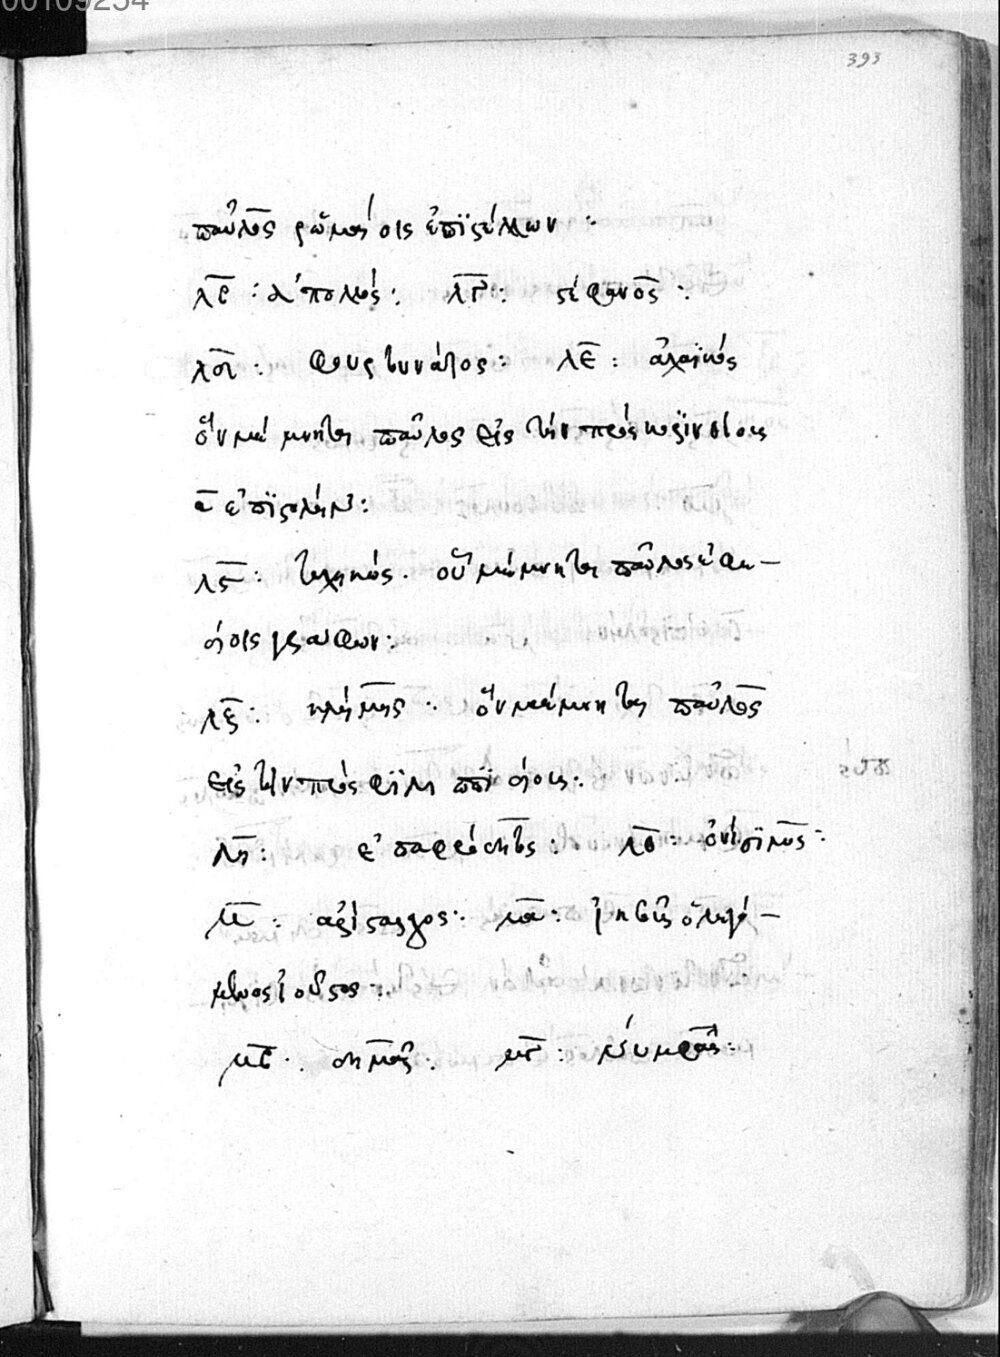 00109254
393
παῦλος ῥωμαίοις ἐπϊστέλλων :
λβ : ἀπολλώς : λγ : στέφανος :
λδ : φουρτουνάτος : λε : ἀχαϊκός
ὃν μέμνηται παῦλος εἰς τὴν πρὸς κορϊνθίους
α ἐπϊστολήν :
λς : τυχικός . οὗ μέμνηται παῦλος ἐφε-
σίοις γράφων :
λζ : κλήμης . ὃν μέμνηται παῦλος
εἰς τὴν πρὸς φϊλιππϊσίοις :
λη : ἐπαφρόδιτος : λθ : ὀνίσϊμος :
μ : ἀρίσταρχος : μα : ἰησοῦς ὁ λεγό-
μενος ἰοῦστος :
μβ . δημᾶς . μγ : νέυμφᾶς :